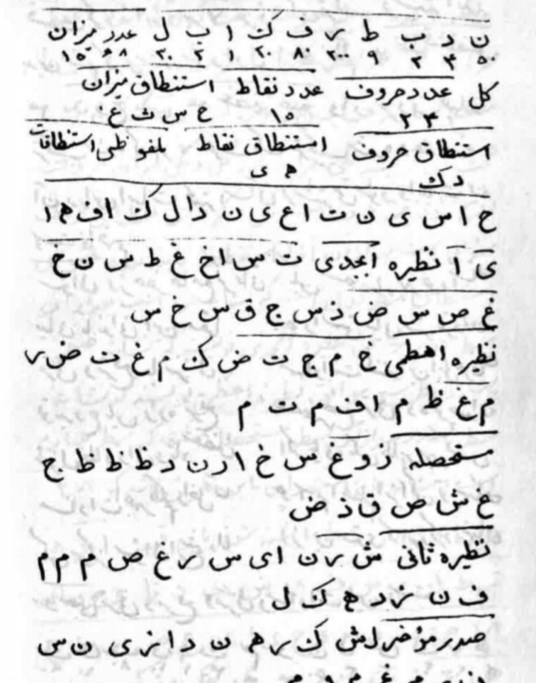 ن د ب ط ر ف ک ا ب ل عدد میزان
۵۰ ۴ ۲ ۹ ۲۰۰ ۸۰ ۲۰ ۱ ۲ ۳۰ ۱۵۶۸
کل عدد حروف عدد نقاط استنطاق میزان
۲۴ ۱۵ ح س ث غ
استنطاق حروف استنطاق نقاط ملفوظی استنطاقات
د ک ه ی
ح ا س ی ن ت ا ع ی ن د ا ل ک ا ف ه ا
ی ا نظیره ابجدی ت س ا خ غ ط س ن خ
غ ص س ض ذ س ج ق س خ س
نظیره اهطمی خ م ج ت ض ک م غ ت ض ر
م غ ظ م ا ف م ت م
مستحصله ز و غ س خ ا ر ن د ظ ظ ظ ج
ع ش ص ق ذ ض
نظیره ثانی ش ر ن ا ی س ر غ ص م م م م
ف ن ز د ه ک ل
صدر مؤخر ل ش ک ر ه ن د ا ز ی ن س